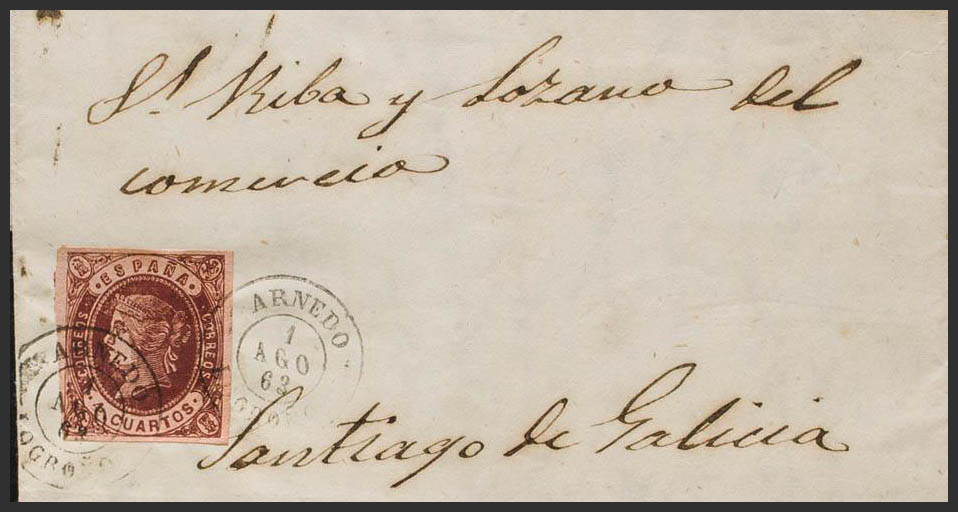 Sr Riba y Lozano del
comercio
ESPAÑA
CORREOS
CORREOS
4 CUARTOS
ARNEDO
1
AGO
63
LOGROÑO
ARNEDO
1
AGO
63
LOGROÑO
Santiago de Galicia